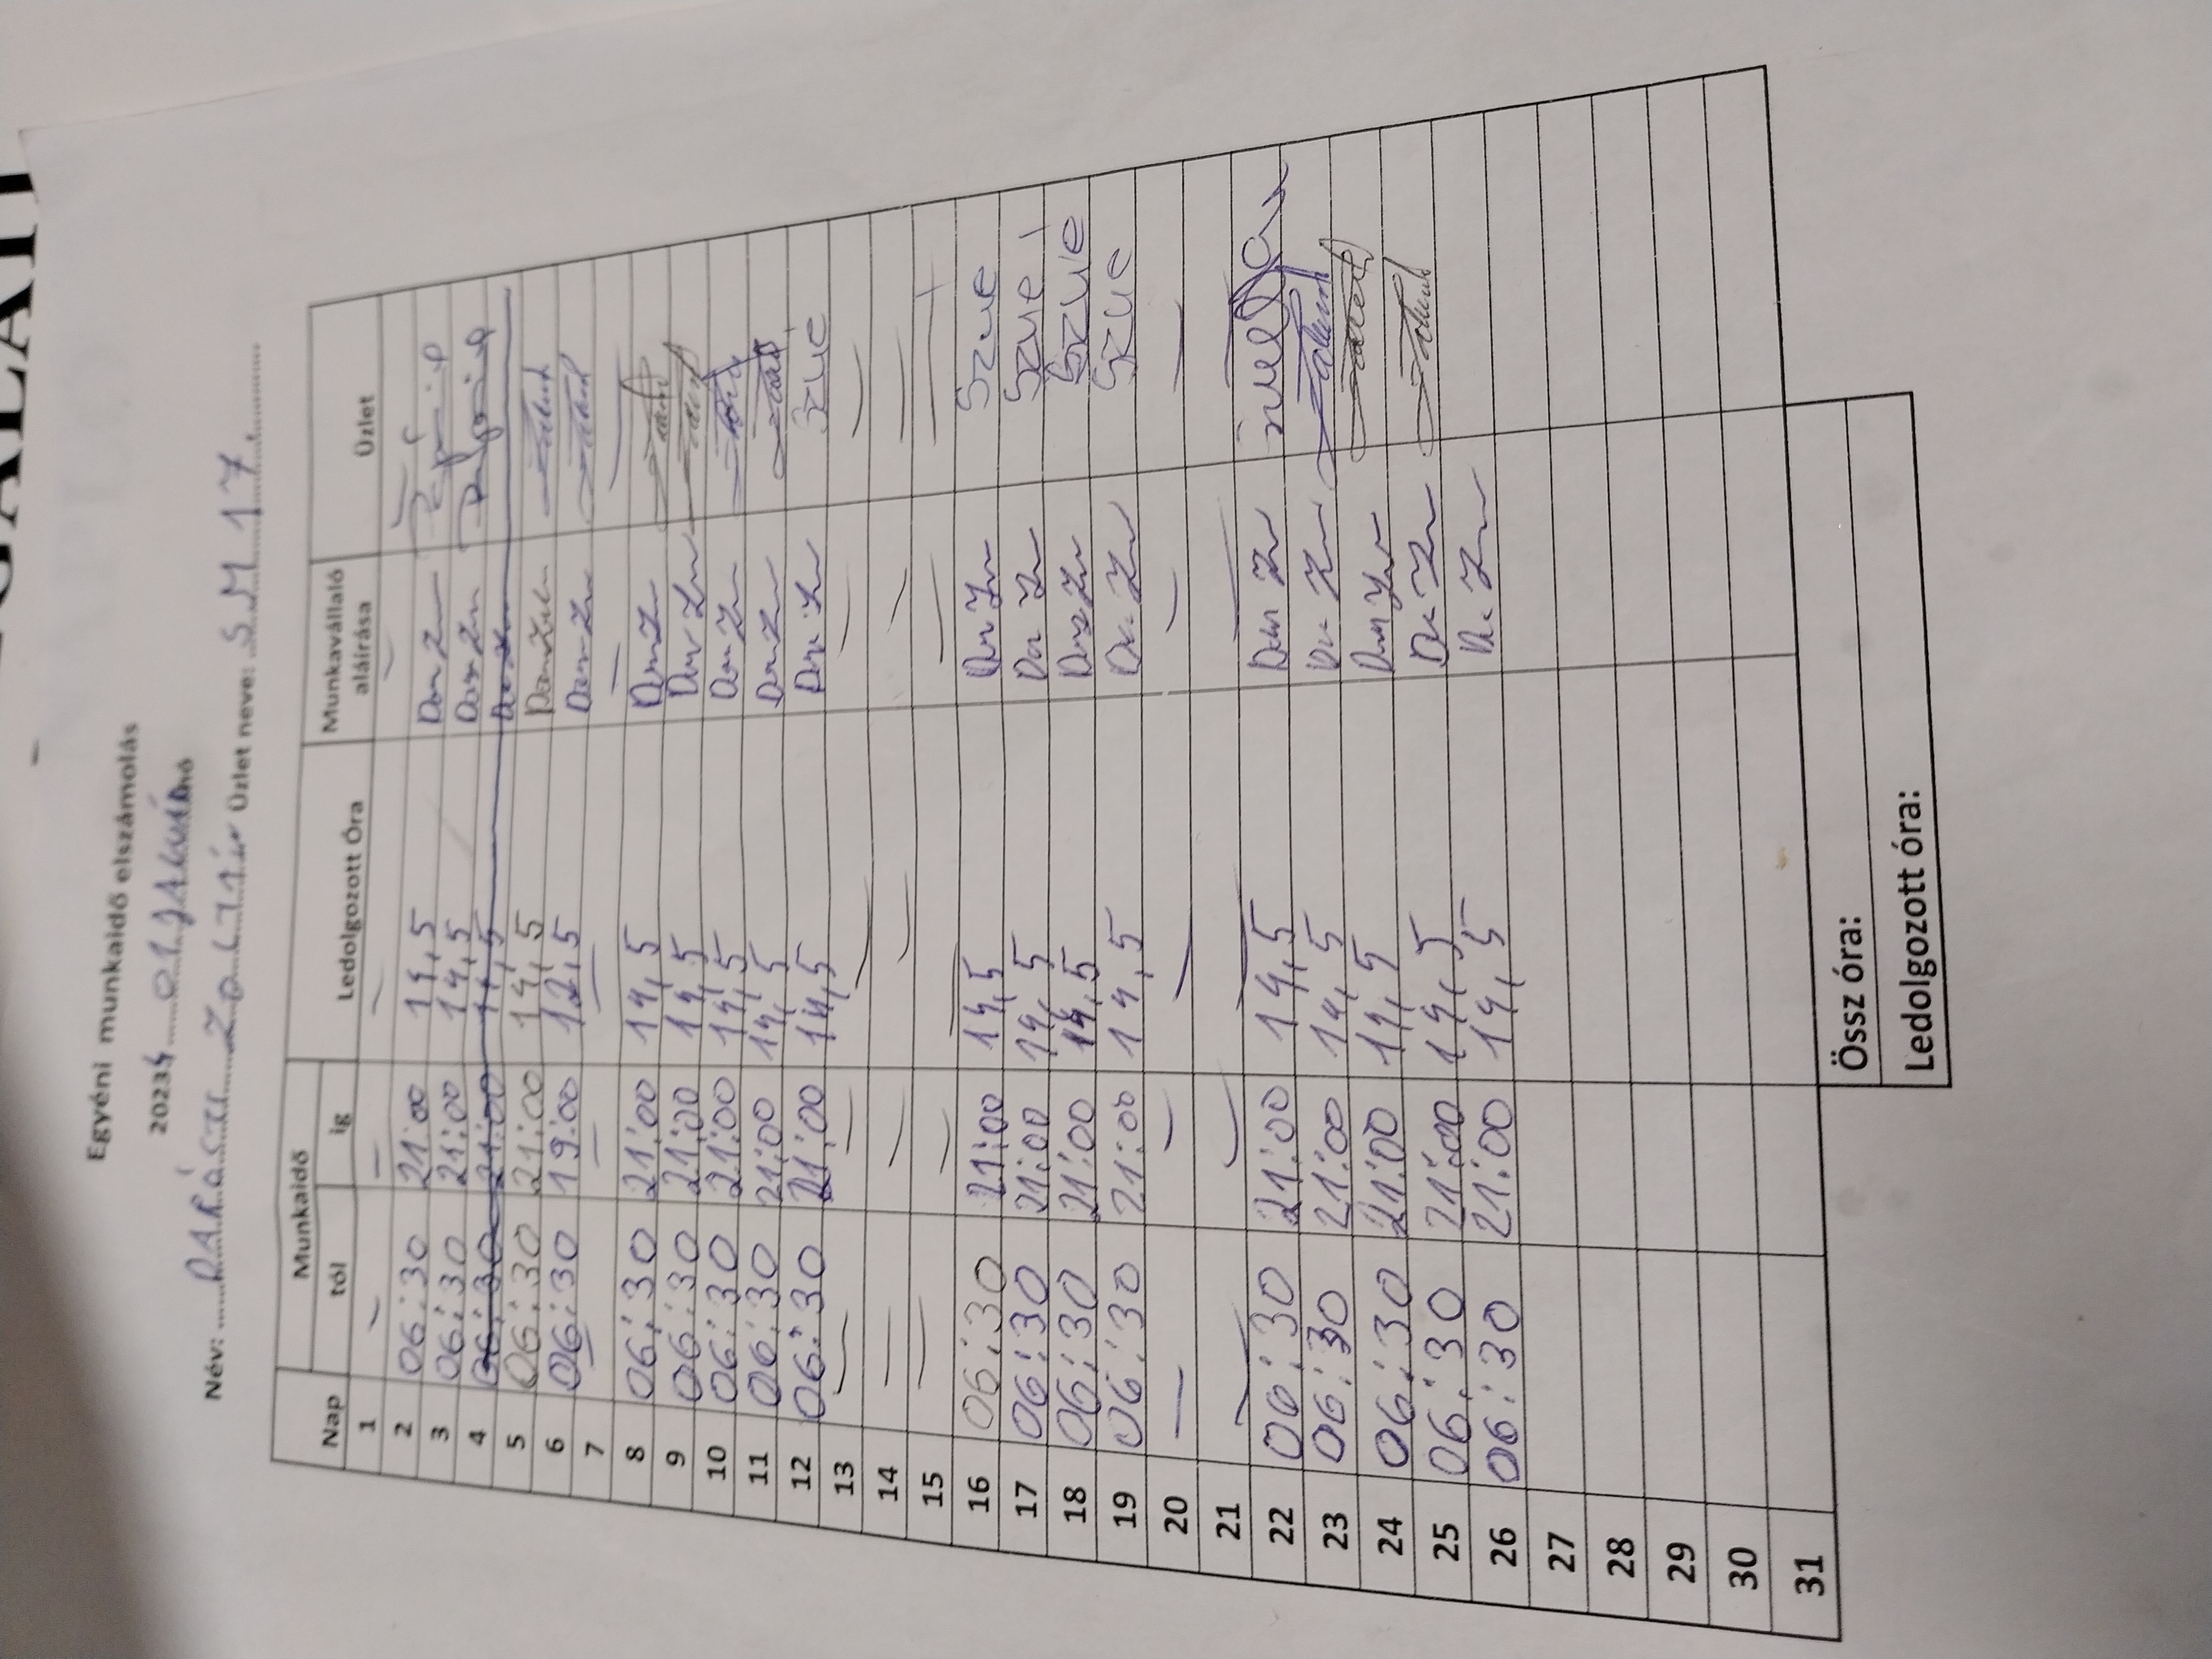 Egyéni munkaidő elszámolás
20234 01 JANUÁR hó
Név: DARÁSZI ZOLTÁN Üzlet neve: S.M 17.
Nap Munkaidő Ledolgozott Óra Munkavállaló aláírása Üzlet
tól ig
1 — — —
2 06:30 21:00 14,5
3 06:30 21:00 14,5
4 06:30 21:00 14,5
5 06:30 21:00 14,5
6 06:30 19:00 12,5
7 — — —
8 06:30 21:00 14,5
9 06:30 21:00 14,5
10 06:30 21:00 14,5
11 06:30 21:00 14,5
12 06:30 21:00 14,5 Szue
13 — — —
14 — — —
15 — — —
16 06:30 21:00 14,5 Szue
17 06:30 21:00 14,5 Szue
18 06:30 21:00 14,5 Szue
19 06:30 21:00 14,5 Szue
20 — — —
21 — — —
22 06:30 21:00 14,5
23 06:30 21:00 14,5
24 06:30 21:00 14,5
25 06:30 21:00 14,5
26 06:30 21:00 14,5
27
28
29
30
31
Össz óra:
Ledolgozott óra: